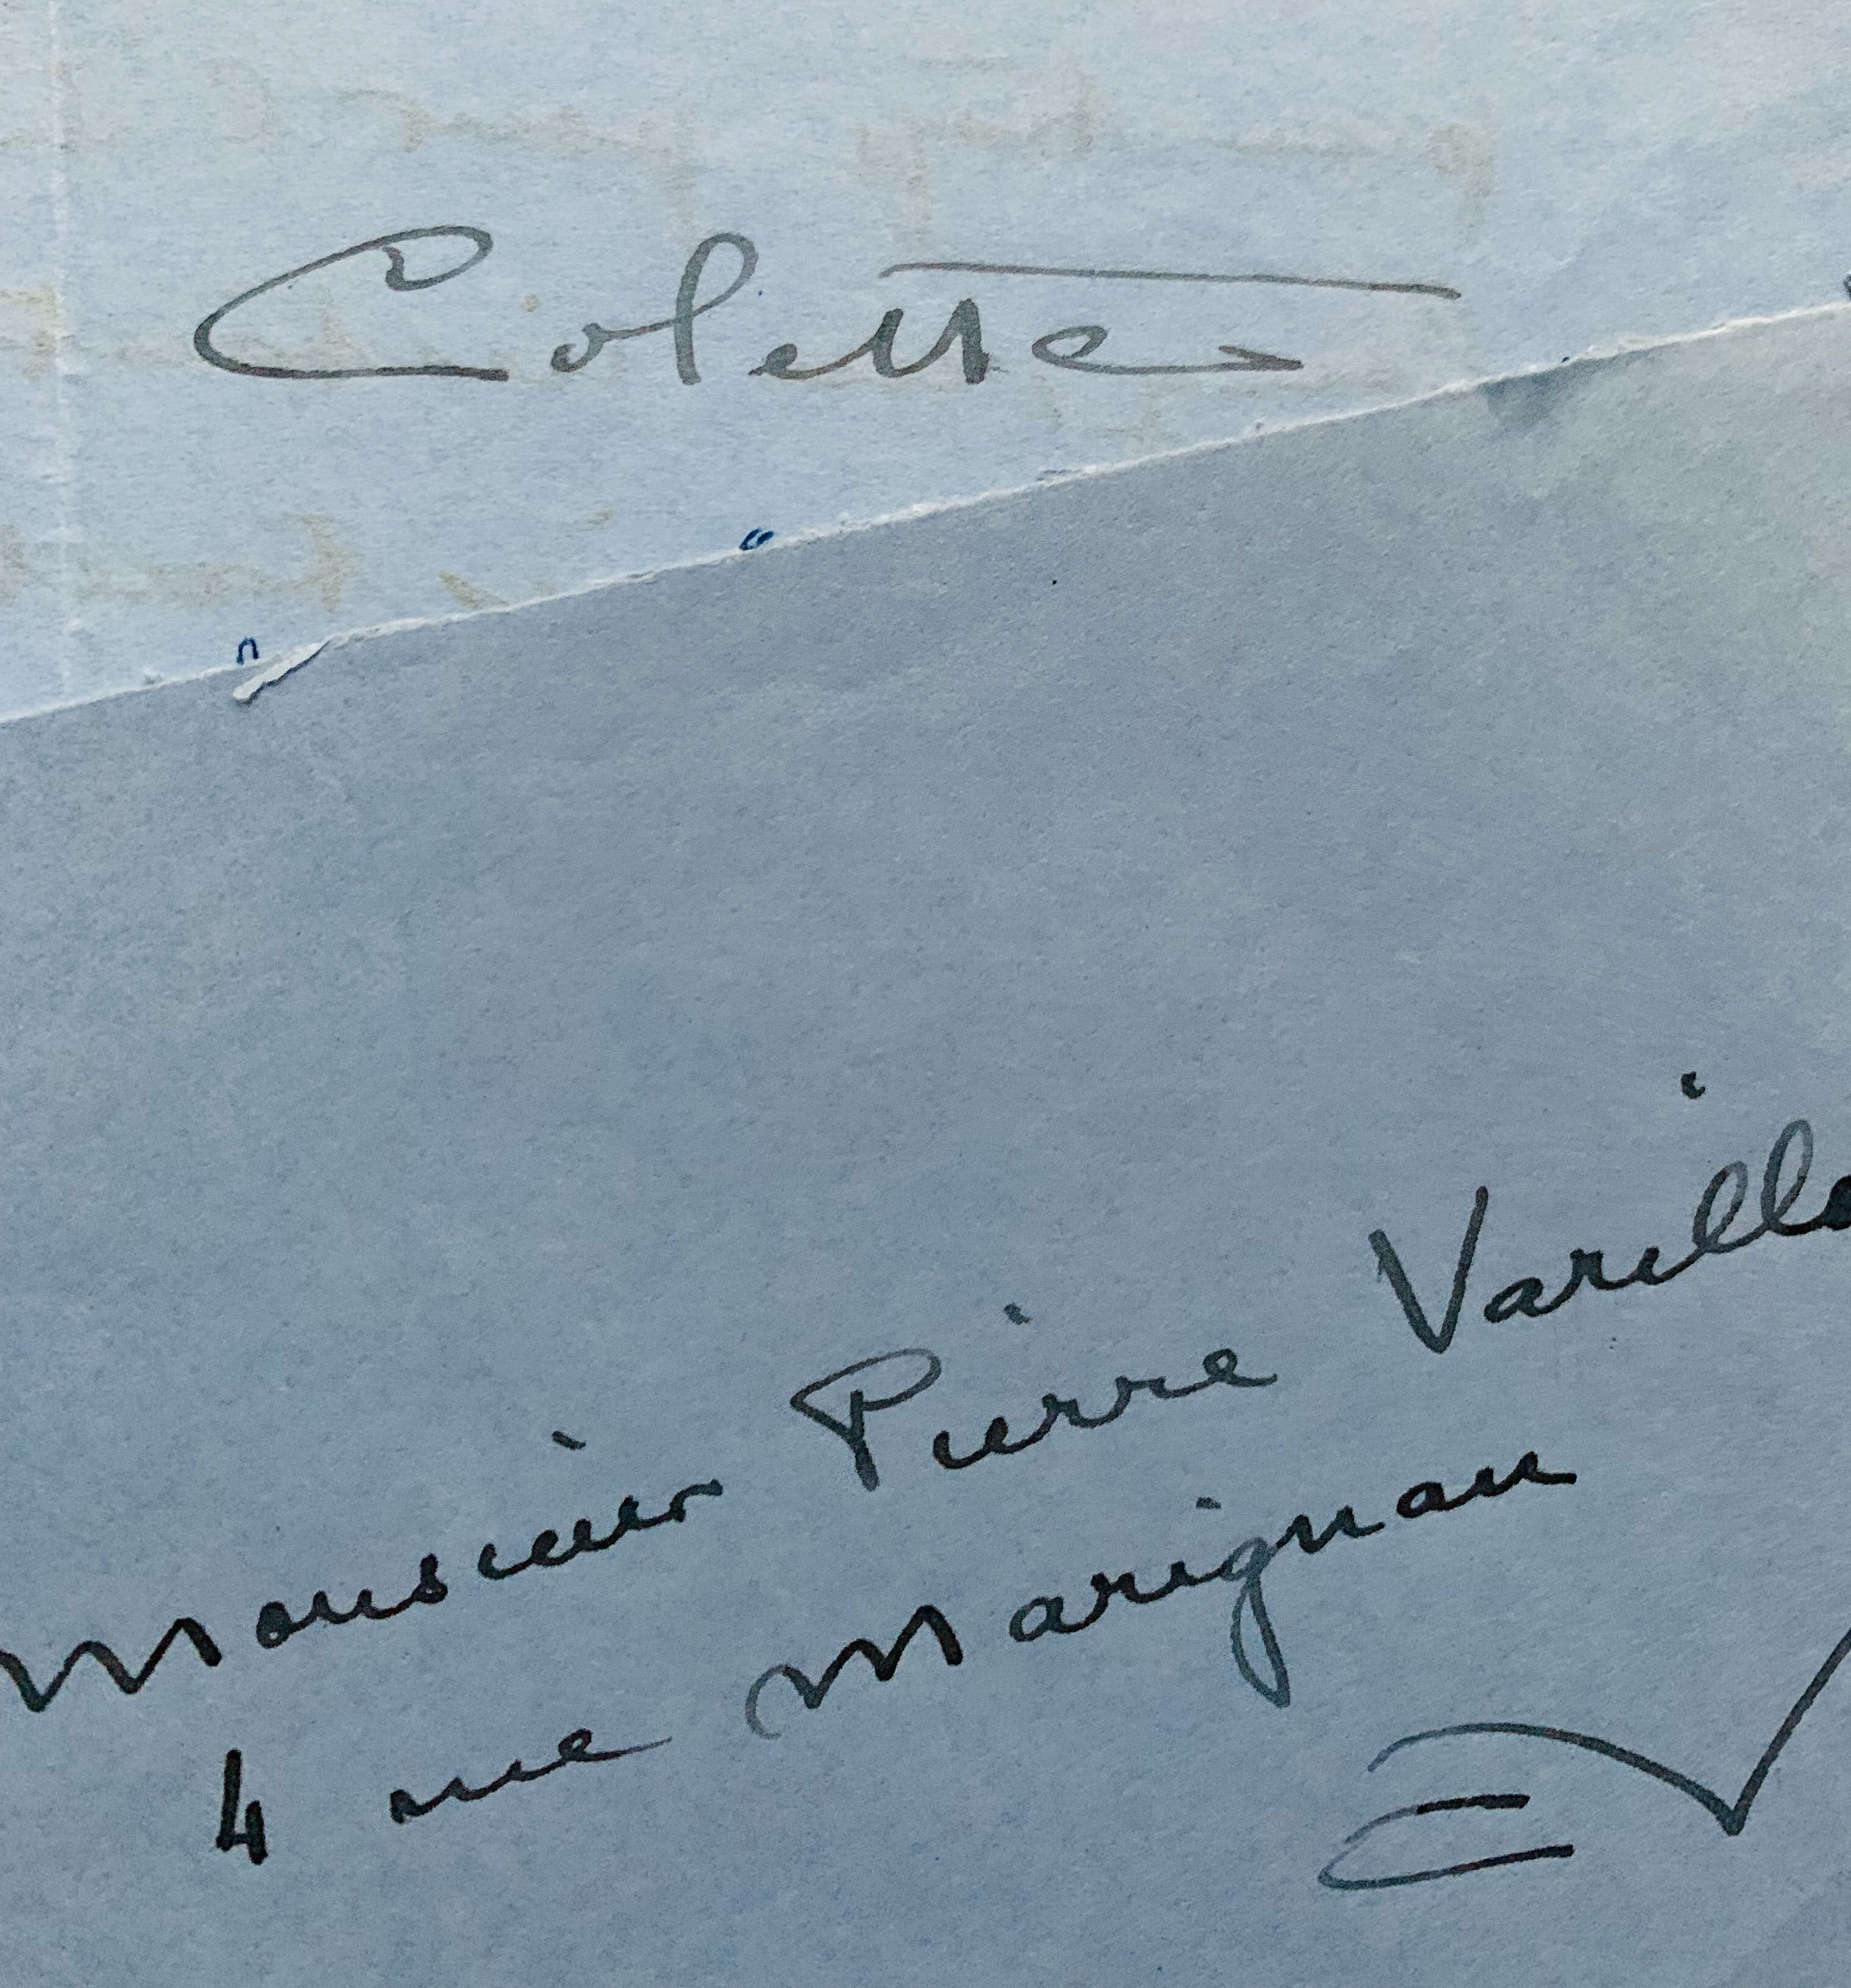 Colette
Monsieur Pierre Varill
4 rue Marignan